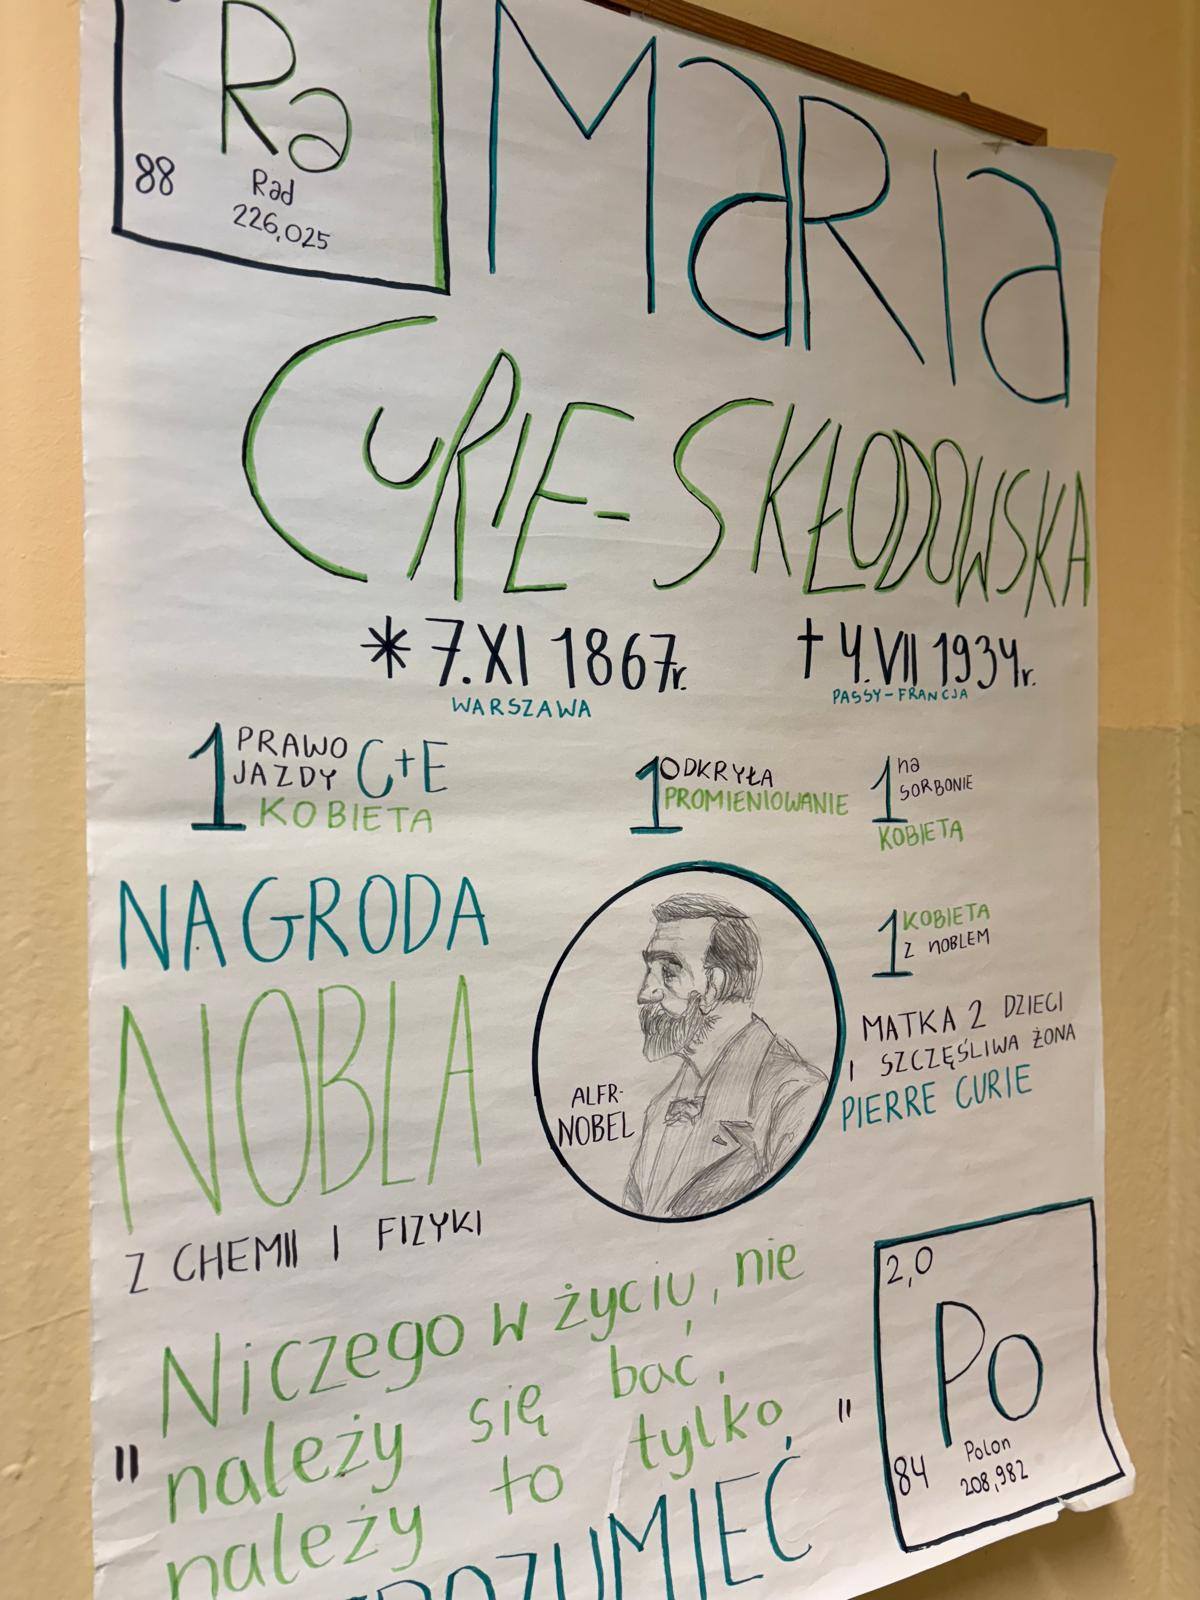 Ra
88
Rad
226,025
MaRIa
CuRIE-SKŁODOWSKA
* 7.XI 1867r.
WARSZAWA
† 4.VII 1934r.
PASSY-FRANCJA
1 PRAWO
JAZDY C+E
KOBIETA
1 ODKRYŁA
PROMIENIOWANIE
1 na
SORBONIE
KOBIETA
NAGRODA
NOBLA
Z CHEMII I FIZYKI
ALFR-
NOBEL
1 KOBIETA
Z NOBLEM
MATKA 2 DZIECI
I SZCZĘŚLIWA ŻONA
PIERRE CURIE
"Niczego w życiu, nie
należy się bać,
należy to tylko
ZROZUMIEĆ"
2,0
Po
84
Polon
208,982